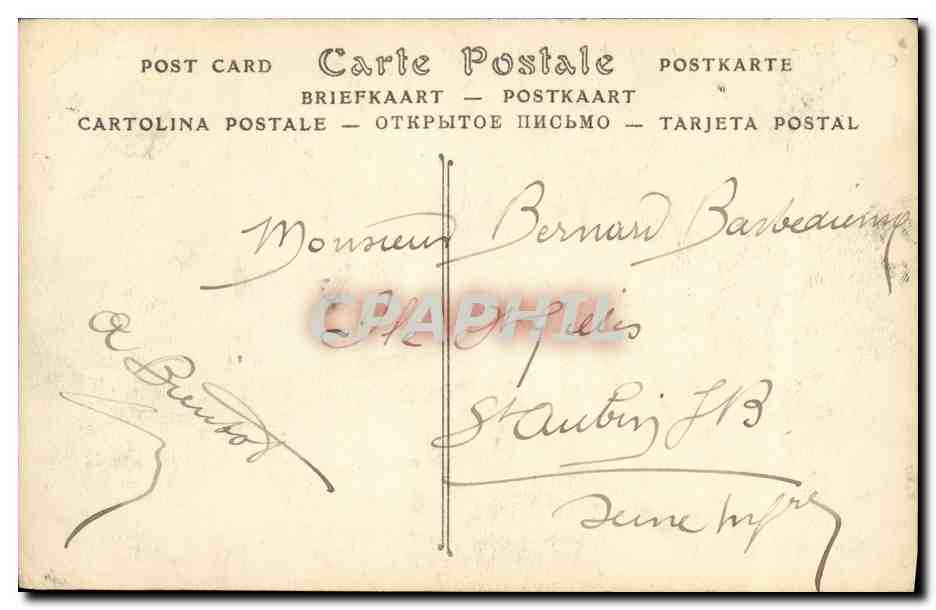 POST CARD Carte Postale POSTKARTE
BRIEFKAART — POSTKAART
CARTOLINA POSTALE — ОТКРЫТОЕ ПИСЬМО — TARJETA POSTAL
Monsieur Bernard Barbedienne
CPAPHIL
St Aubin J B
Seine Infre
A Bientot